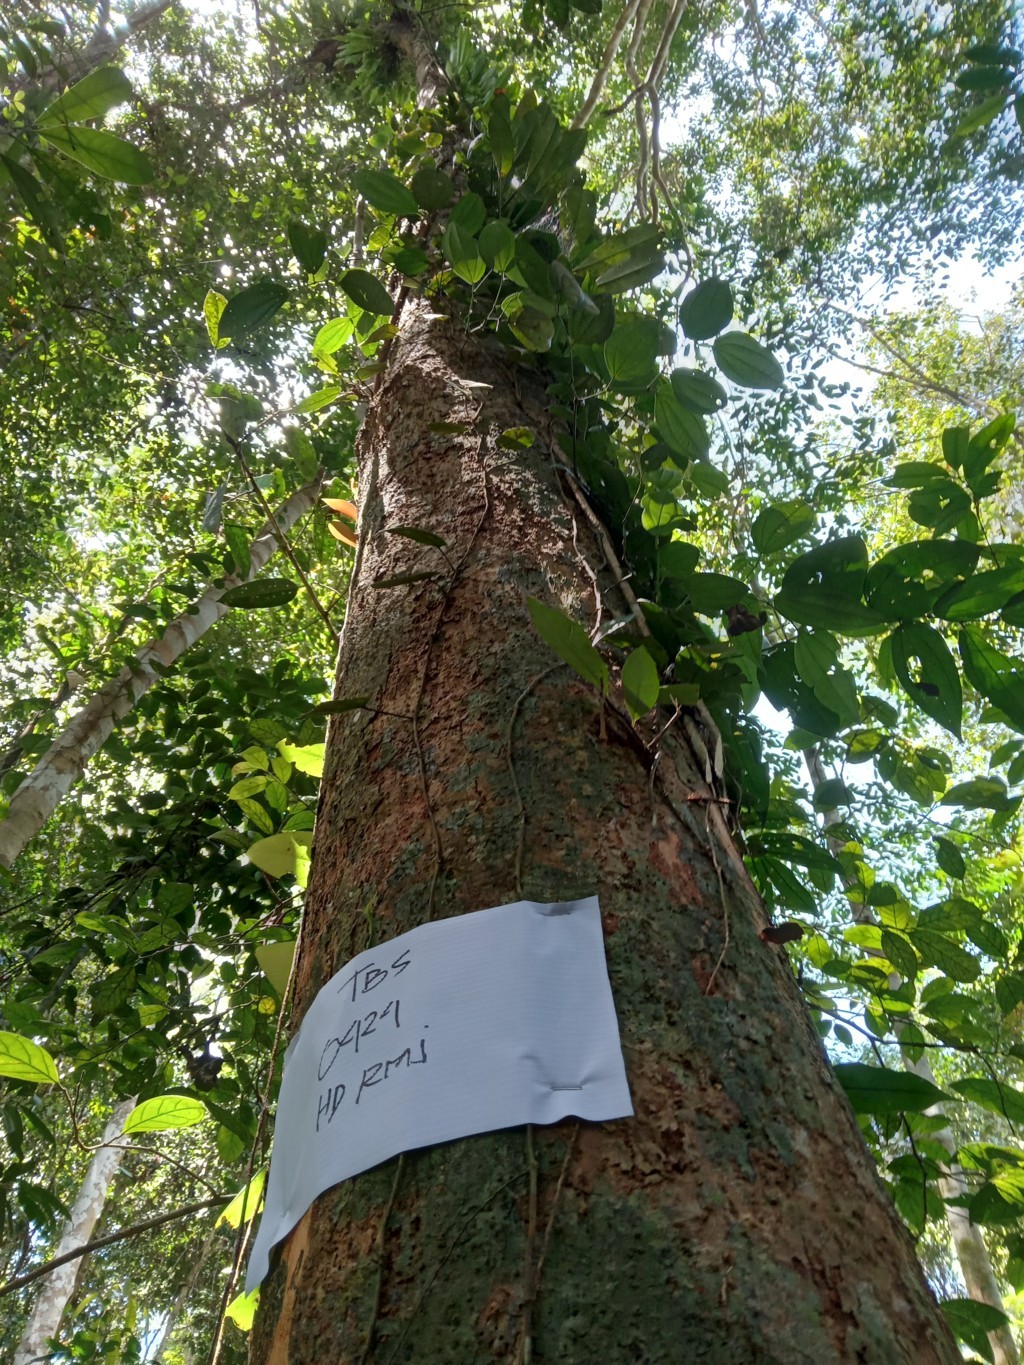 TBS
0424
HD RMJ